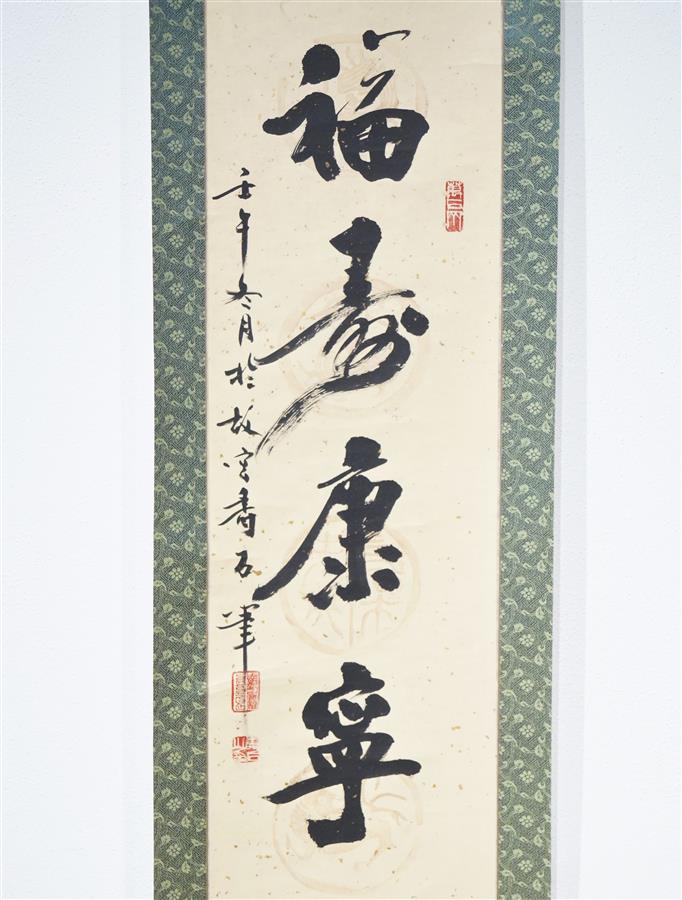 福壽康寧
壬午冬月於故宮喬石筆